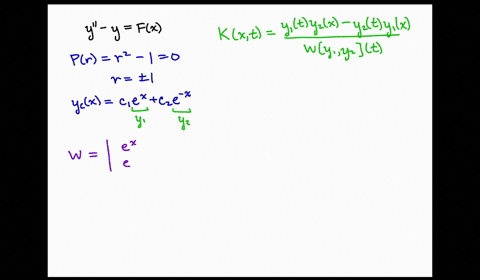 y'' - y = F(x)
P(r) = r² - 1 = 0
r = ±1
y_c(x) = c₁e^x + c₂e^-x
y₁ y₂
W = | e^x
e
K(x,t) = y₁(t)y₂(x) - y₂(t)y₁(x)
W[y₁,y₂](t)